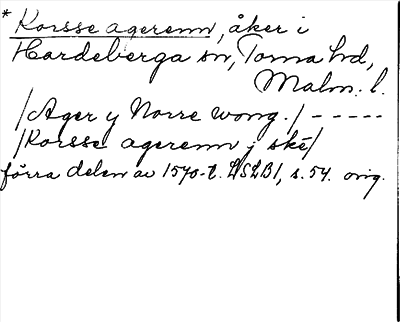 * Korsse agerenn, åker i
Hardeberga sn, Torna hd,
Malm. l.
/Ager y Norre wong./ -----
/Korsse agerenn j ské/
förra delen av 1570-t. LSLB1, s. 54. orig.